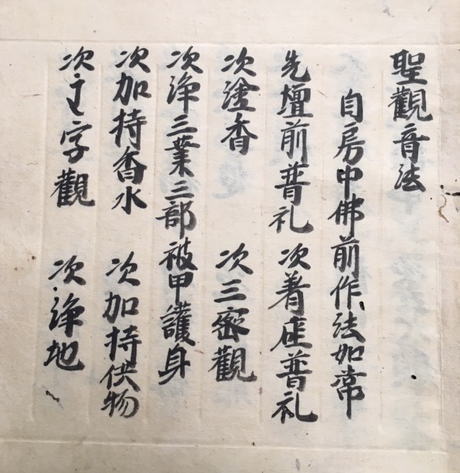 聖觀音法
自房中佛前作法如常
先壇前普礼 次着座普礼
次塗香 次三密觀
次淨三業三部被甲護身
次加持香水 次加持供物
次字觀 次淨地